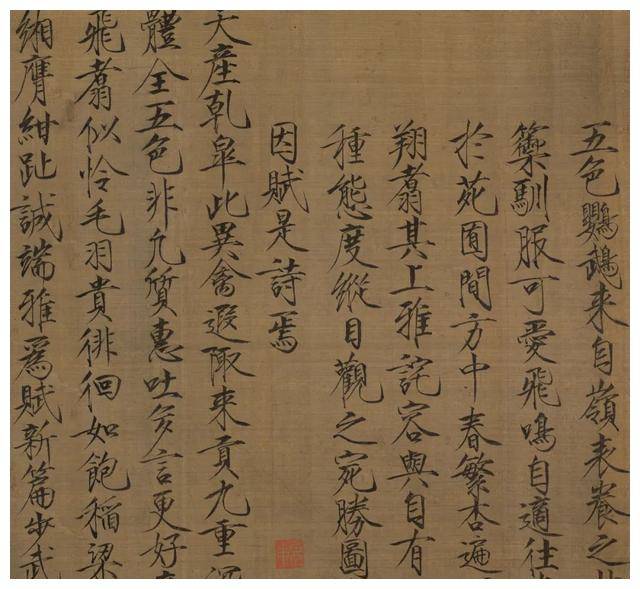 五色鸚鵡来自嶺表養之
籞馴服可愛飛鳴自適往
於苑囿間方中春繁杏遍
翔翥其上雅詫容與自有
種態度縱目觀之宛勝圖
因賦是詩焉
天產乾皋此異禽遐陬来貢九重
體全五色非凡質惠吐多言更好
飛翥似怜毛羽貴徘徊如飽稻粱
緗膺紺趾誠端雅為賦新篇步武